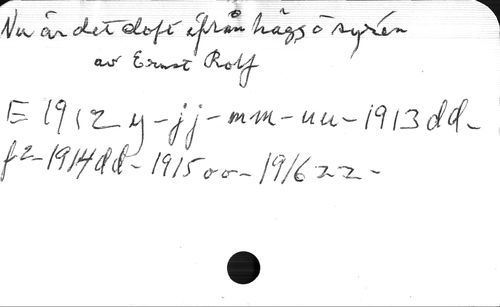 Nu är det doft ifrån hägg ó syrén
av Ernst Rolf
E 1912 y - jj - mm - uu - 1913 dd -
f2 - 1914 dd - 1915 oo - 1916 zz -